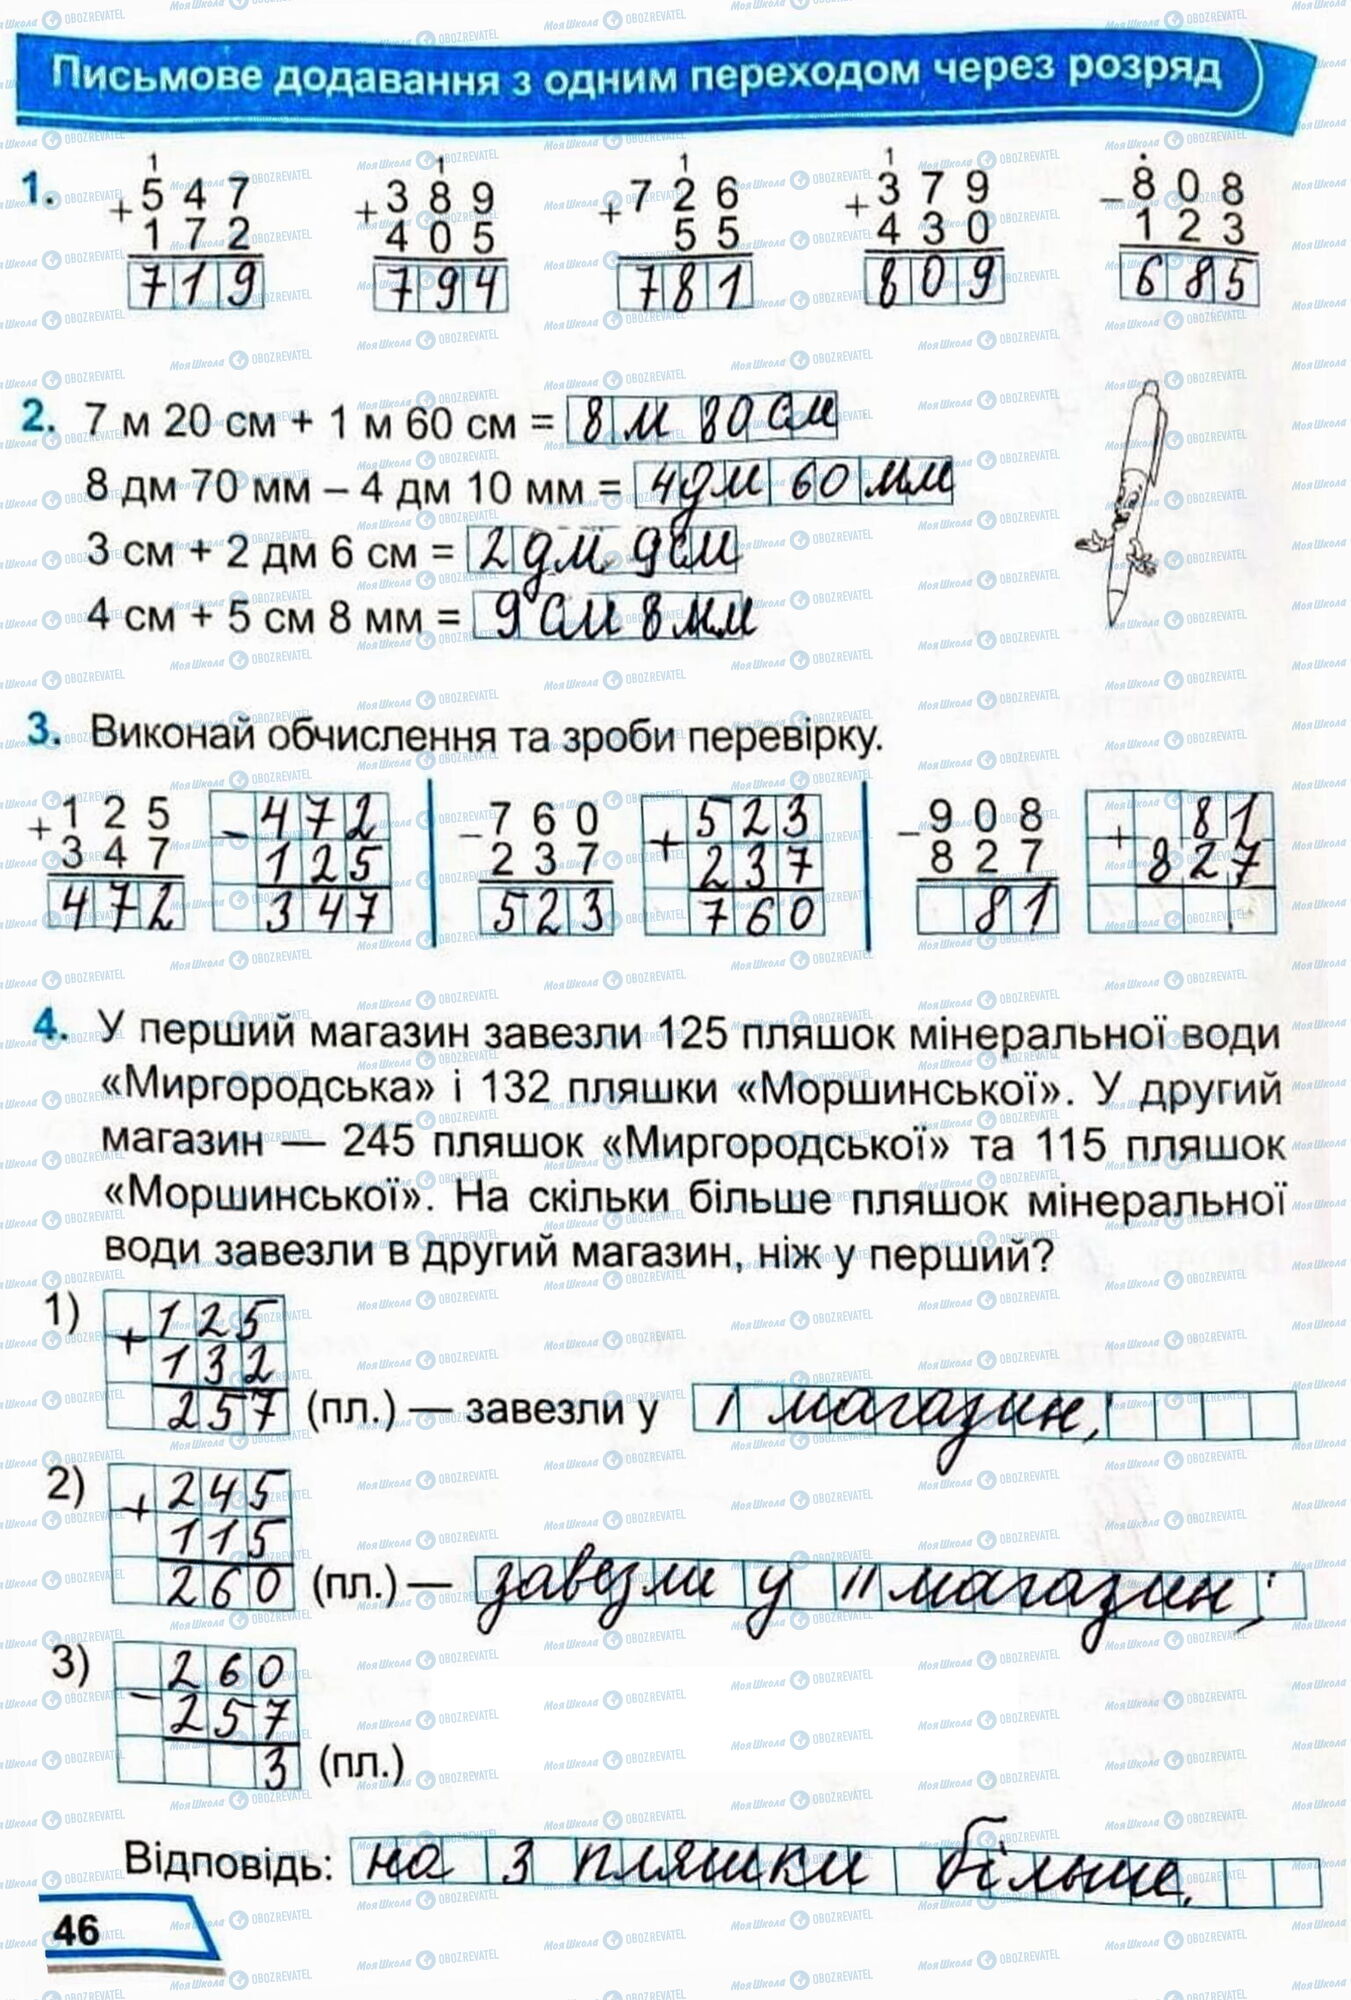 Письмове додавання з одним переходом через розряд
1.
1 1 1 1 .
+ 5 4 7 + 3 8 9 + 7 2 6 + 3 7 9 − 8 0 8
1 7 2 4 0 5 5 5 4 3 0 1 2 3
7 1 9 7 9 4 7 8 1 8 0 9 6 8 5
2. 7 м 20 см + 1 м 60 см = 8 м 80 см
8 дм 70 мм – 4 дм 10 мм = 4 дм 60 мм
3 см + 2 дм 6 см = 2 дм 9 см
4 см + 5 см 8 мм = 9 см 8 мм
3. Виконай обчислення та зроби перевірку.
+ 1 2 5 − 4 7 2 − 7 6 0 + 5 2 3 − 9 0 8 + 8 1
3 4 7 1 2 5 2 3 7 2 3 7 8 2 7 8 2 7
4 7 2 3 4 7 5 2 3 7 6 0 8 1
4. У перший магазин завезли 125 пляшок мінеральної води
«Миргородська» і 132 пляшки «Моршинської». У другий
магазин — 245 пляшок «Миргородської» та 115 пляшок
«Моршинської». На скільки більше пляшок мінеральної
води завезли в другий магазин, ніж у перший?
1) + 1 2 5
1 3 2
2 5 7 (пл.) — завезли у I магазин,
2) + 2 4 5
1 1 5
2 6 0 (пл.) — завезли у II магазин;
3) − 2 6 0
2 5 7
3 (пл.)
Відповідь: на 3 пляшки більше.
46
МояШкола OBOZREVATEL